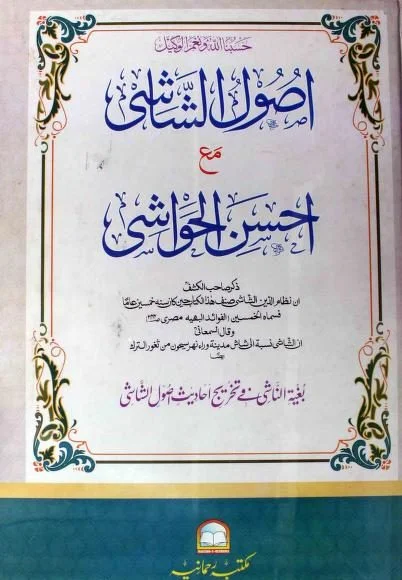 حسبنا الله ونعم الوكيل
اصول الشاشی
مع
احسن الحواشی
ذكر صاحب الكشف
ان نظام الدين الشاشى صنف هذا الكتاب حين كان سنه خمسين عاما
فسماه الخمسين (الفوائد البهيه مصرى ص
وقال السمعانى
ان الشاشى نسبة الى شاش مدينة وراء نهر سيحون من ثغور الترك
بغية الناشی فی تخریج احادیث اصول الشاشی
مکتبہ رحمانیہ